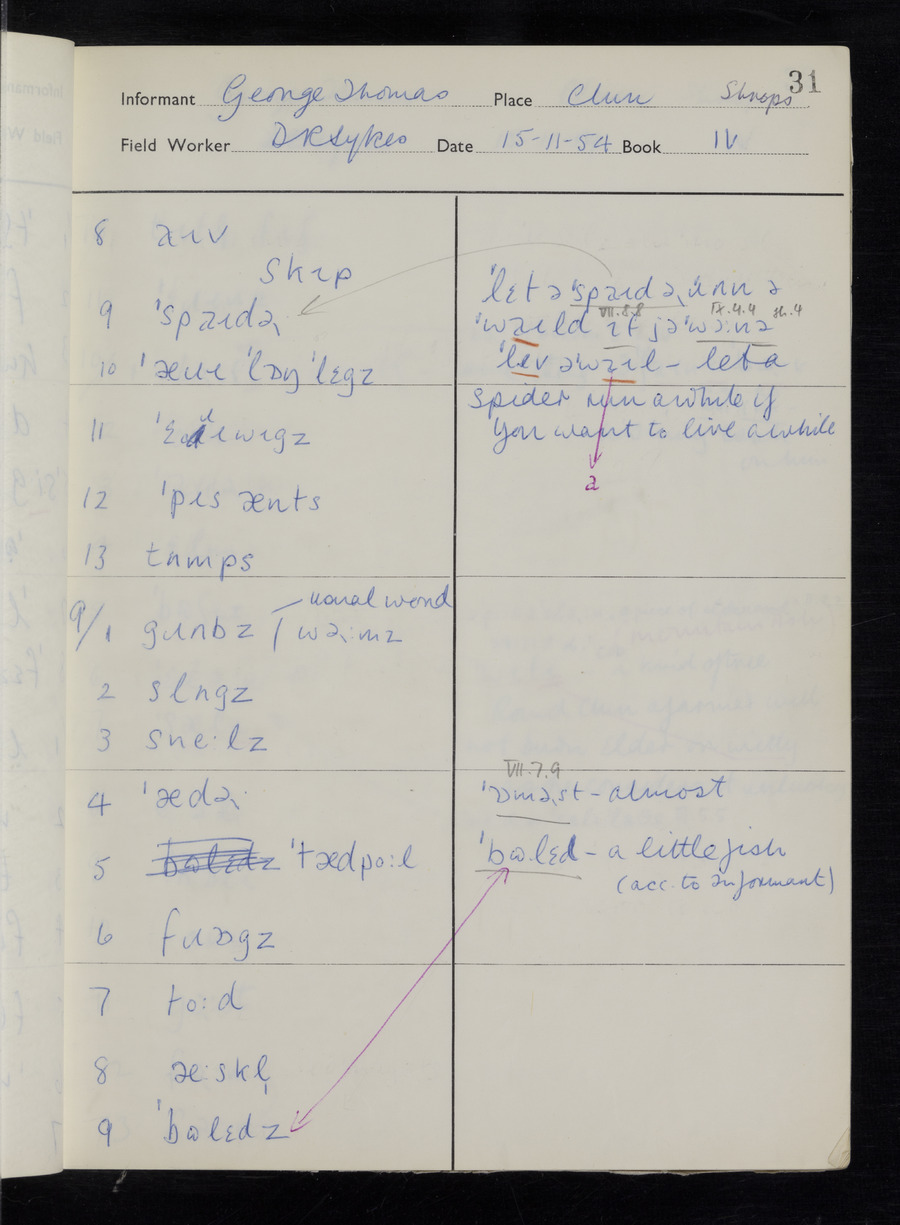 31
Informant George Thomas Place Clun Shrops
Field Worker D R Sykes Date 15-11-54 Book IV
8 aɪv
skɪp
9 ˈspaɪdə˞
10 ˈæɹɪ ˈlɒŋ ˈlɛgz
11
12 ˈpɪs ænts
13 tʌmps
9/1 gɹʌbz / wə˞:mz usual word
2 slʌgz
3 sne:lz
4 ˈædə˞
5 ˈtædpo:l
6 fɹɒgz
7 to:d
8 æ:skl̩
9 ˈbʊlɛdz
ˈlɛt ə ˈspaɪdə˞ ˈɹʌn ə
VII.8.8 IX.4.4 sh.4
ˈwaɪl
ˈlɪv əˈwaɪl – let a
spider run awhile if
you want to live awhile
a
VII.7.9
ˈɒmə˞st – almost
ˈbʊlɛd – a little fish
(acc. to informant)